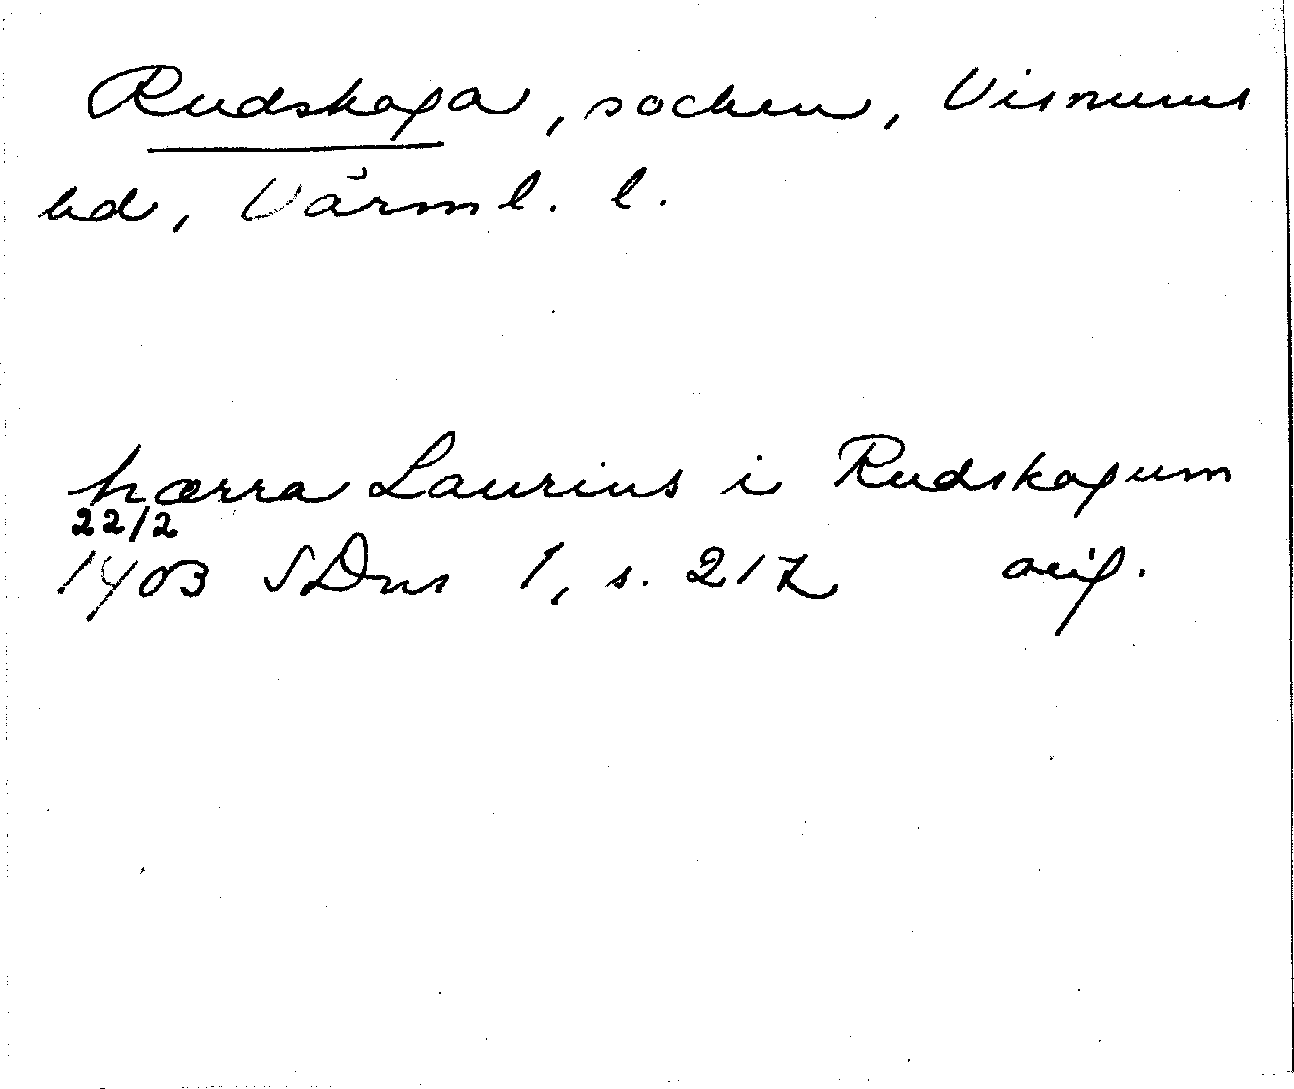 Rudskoga, socken, Visnums
hd, Värml. l.
hærra Laurins i Rudskogum
22/2
1403 SDns 1, s. 217 orig.